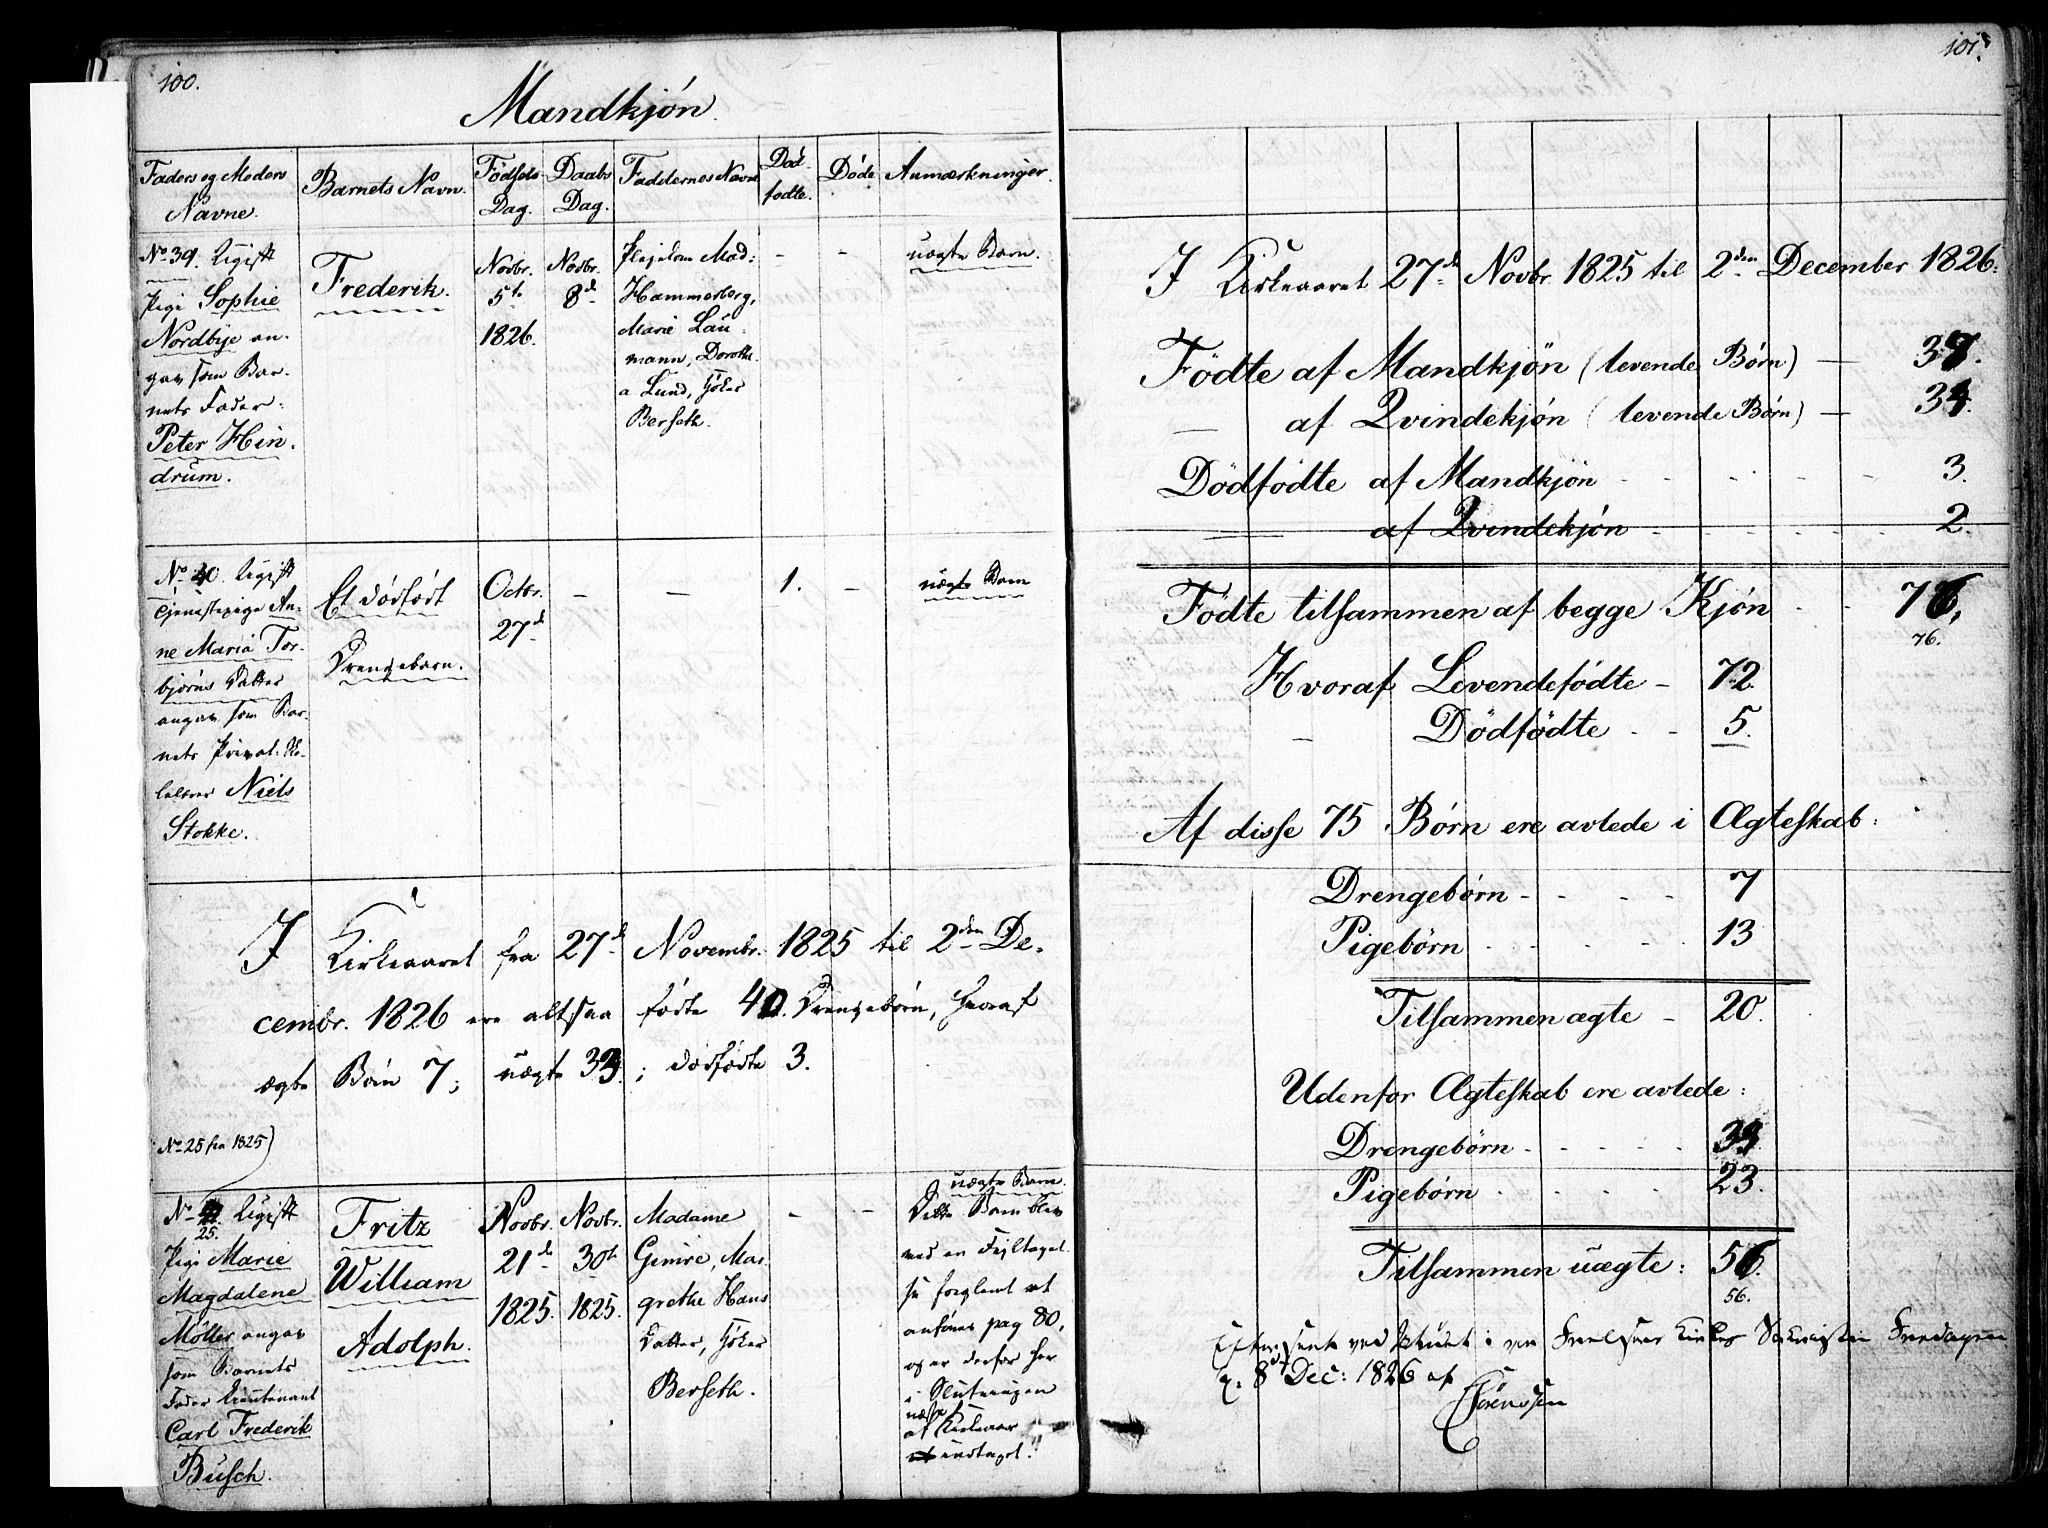 100.
Mandkjön.
Faders og Moders
Navne.
Barnets Navn.
Födsels
Dag.
Daabs
Dag.
Faddernes Navne
Död-
fødte.
Döde
Anmærkninger.
No 39. Ugift
Pige Sophie
Nordbye an-
gav som Bar-
nets Fader:
Peter Hin-
drum.
Frederik.
Novbr.
5te
1826.
Novbr.
8d
Mad:
Hammerborg,
Marie Lau-
mann, Dorothe-
a Lund, Göker
Berseth.
-
-
uægte Barn.
No 40. Ugift
Tjenestepige An-
ne Maria Tor-
bjørns Datter
angav som Bar-
nets Privat-Sko-
lelærer Niels
Stokke.
Et dödfödt
Drengebarn.
Octbr.
27d
-
-
1.
-
uægte Barn
I Kirkeaaret fra 27d Novembr. 1825 til 2den De-
cembr. 1826 ere altsaa födte 40. Drengebörn, hvoraf
ægte Börn 7; uægte 33; dødfødte 3.
No 25 fra 1825)
No 25. Ugift
Pige Marie
Magdalene
Möller angav
som Barnets
Fader Lieutenant
Carl Frederik
Busch.
Fritz
William
Adolph.
Novbr.
21d
1825.
Novbr.
30te
1825.
Madame
Gimire, Mar-
grethe Hans
Datter, Göker
Berseth.
-
-
uægte Barn.
Dette Barn blev
ved en Fejltagel-
se forglemt at
anföres pag 80,
og er derfor her
i Slutningen
af næste Kirkeaar
indtaget.
101.
I Kirkeaaret 27d Novbr. 1825 til 2den December 1826:
Födte af Mandkjön (levende Börn) - 37.
- af Qvindekjön (levende Börn) - 34.
Dödfödte af Mandkjön - - - 3.
- af Qvindekjön - - - 2.
Födte tilsammen af begge Kjön - - 76.
76.
Hvoraf Levendefödte - 72.
- Dödfödte - - 5.
Af disse 75 Börn ere avlede i Ægteskab:
Drengebörn - - - - 7
Pigebörn - - - - 13
Tilsammen ægte - 20.
Udenfor Ægteskab ere avlede:
Drengebörn - - - - 33.
Pigebörn - - - - 23.
Tilsammen uægte: 56.
56.
Efterseet ved i vor Frelsers Kirkes Sakristie Fredagen
d. 8d Dec: 1826 af
Sörenssen